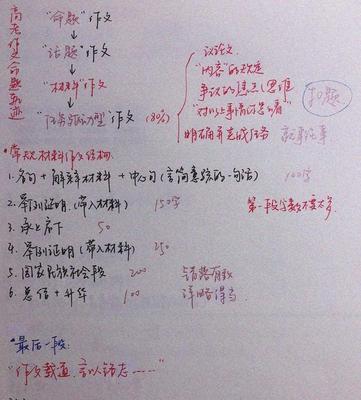 高考作文命题轨迹
"命题"作文
"话题"作文
"材料"作文
"任务驱动型"作文 (80%)
议论文
"内容"的改造
争议的焦点(思维
"对以上事情你怎么看"
明确并完成任务 就事论事
扣题
常规材料作文结构:
1. 名句 + 解释材料 + 中心句(言简意赅的一句话) 100字
2. 举例证明(带入材料) 150字
第一段字数不要太多
3. 承上启下 50
4. 举例证明(带入材料) 250
5. 国家民族社会段 200
6. 总结+升华 100
错落有致
详略得当
最后一段:
"作文载道,言以铭志……"